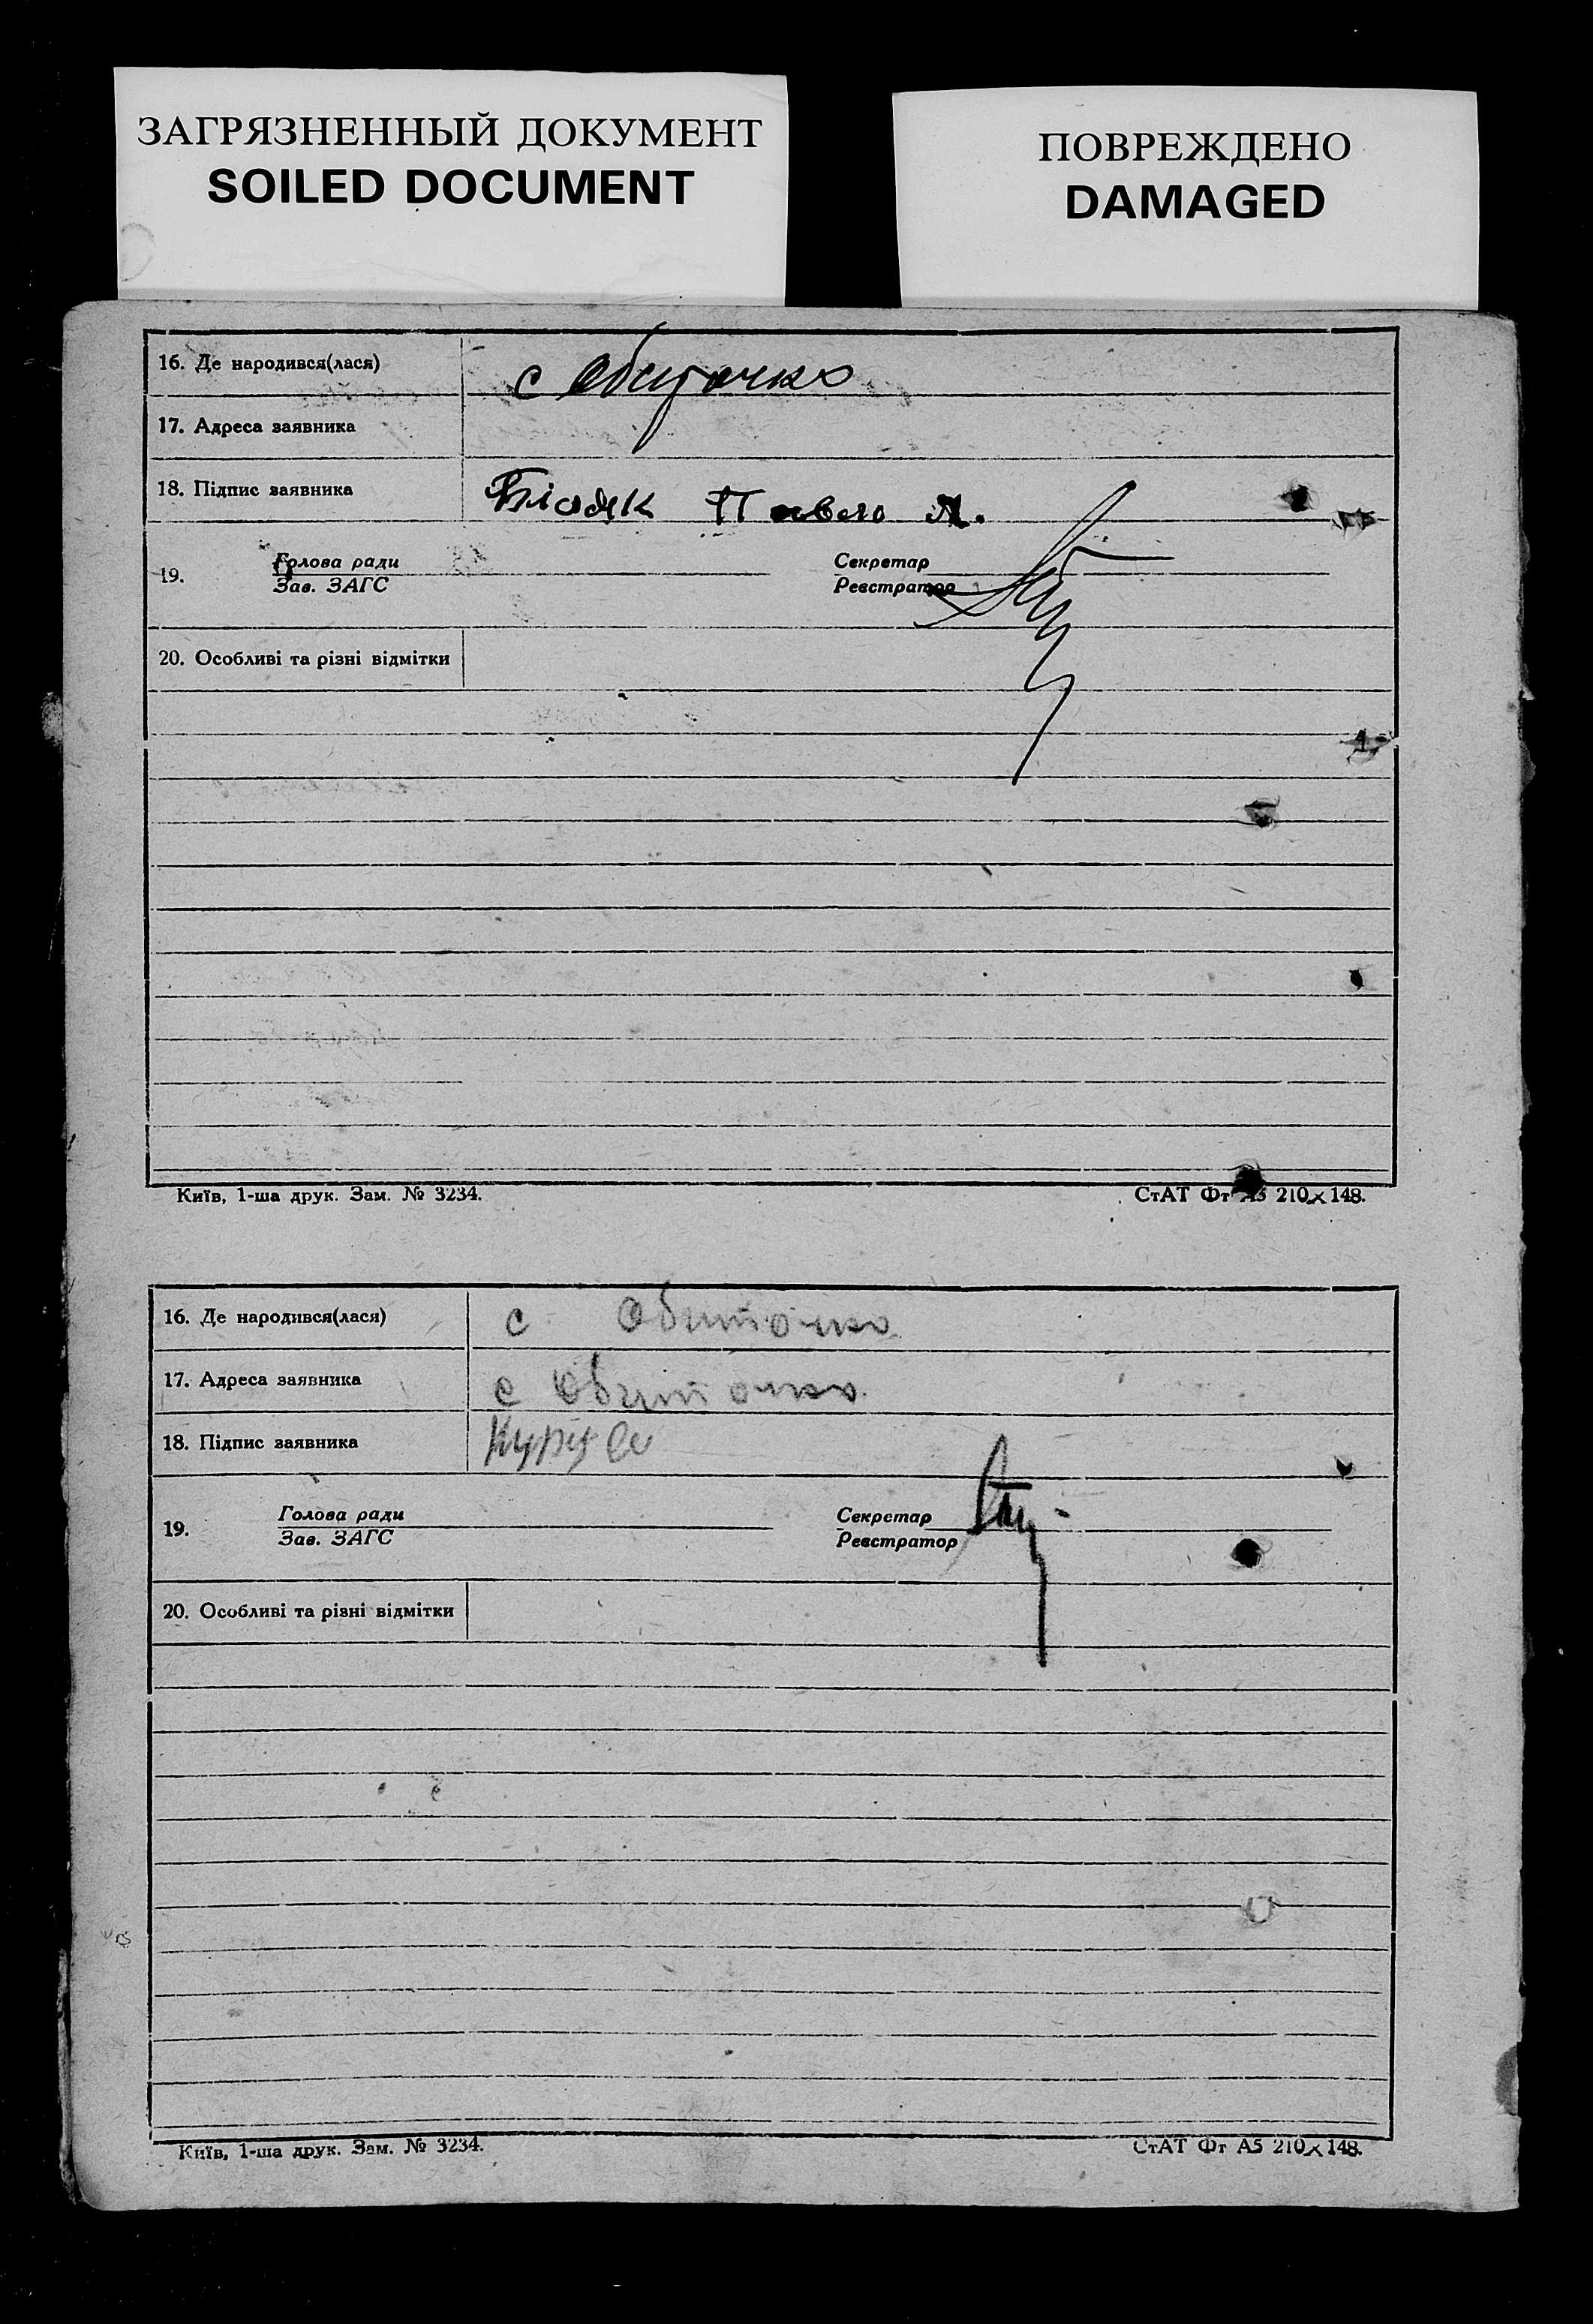 ЗАГРЯЗНЕННЫЙ ДОКУМЕНТ
SOILED DOCUMENT
ПОВРЕЖДЕНО
DAMAGED
16. Де народився(лася) с Обиточно
17. Адреса заявника
18. Підпис заявника Павло А.
19. Голова ради Секретар
Зав. ЗАГС Реєстратор
20. Особливі та різні відмітки
Київ, 1-ша друк. Зам. № 3234. СтАТ Фт А5 210×148.
16. Де народився(лася) с Обиточно
17. Адреса заявника с Обиточно
18. Підпис заявника
19. Голова ради Секретар
Зав. ЗАГС Реєстратор
20. Особливі та різні відмітки
Київ, 1-ша друк. Зам. № 3234. СтАТ Фт А5 210×148.